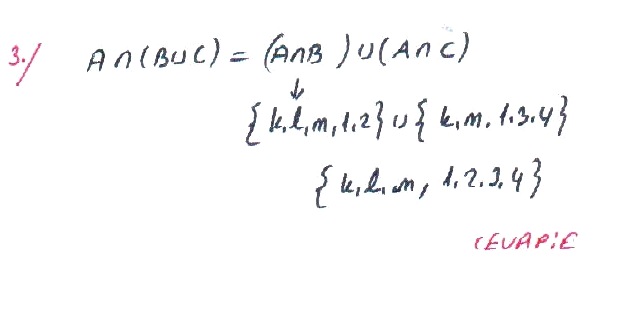 3./ A∩(B∪C) = (A∩B)∪(A∩C)
↓
{k,l,m,1,2}∪{k,m,1.3.4}
{k,l,m, 1.2.3,4}
CEVAP:E